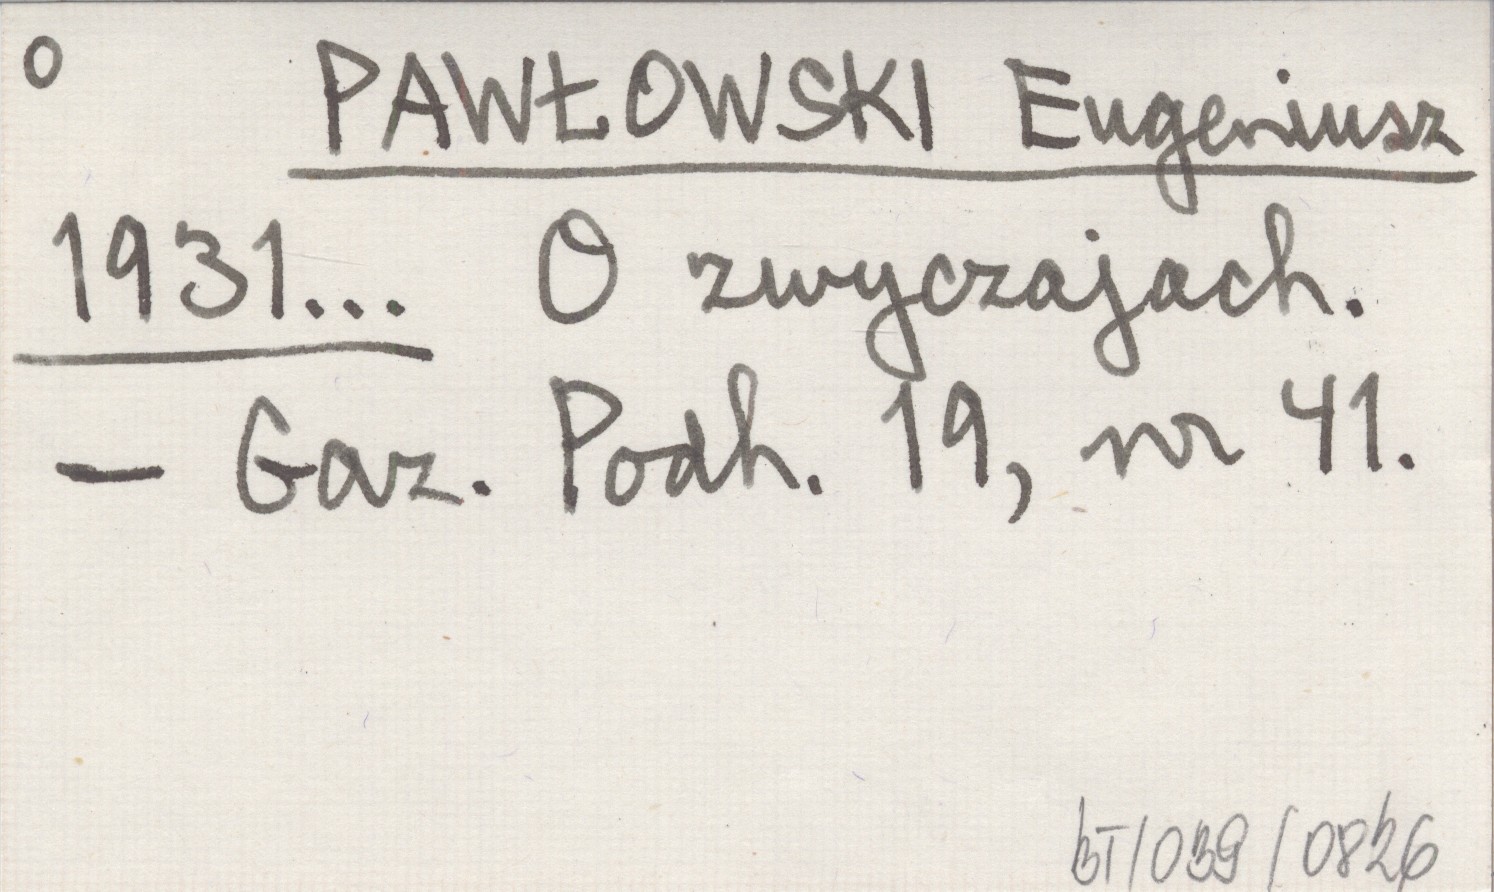 o PAWŁOWSKI Eugeniusz
1931... O zwyczajach.
— Gaz. Podh. 19, nr 41.
BT/039/0826